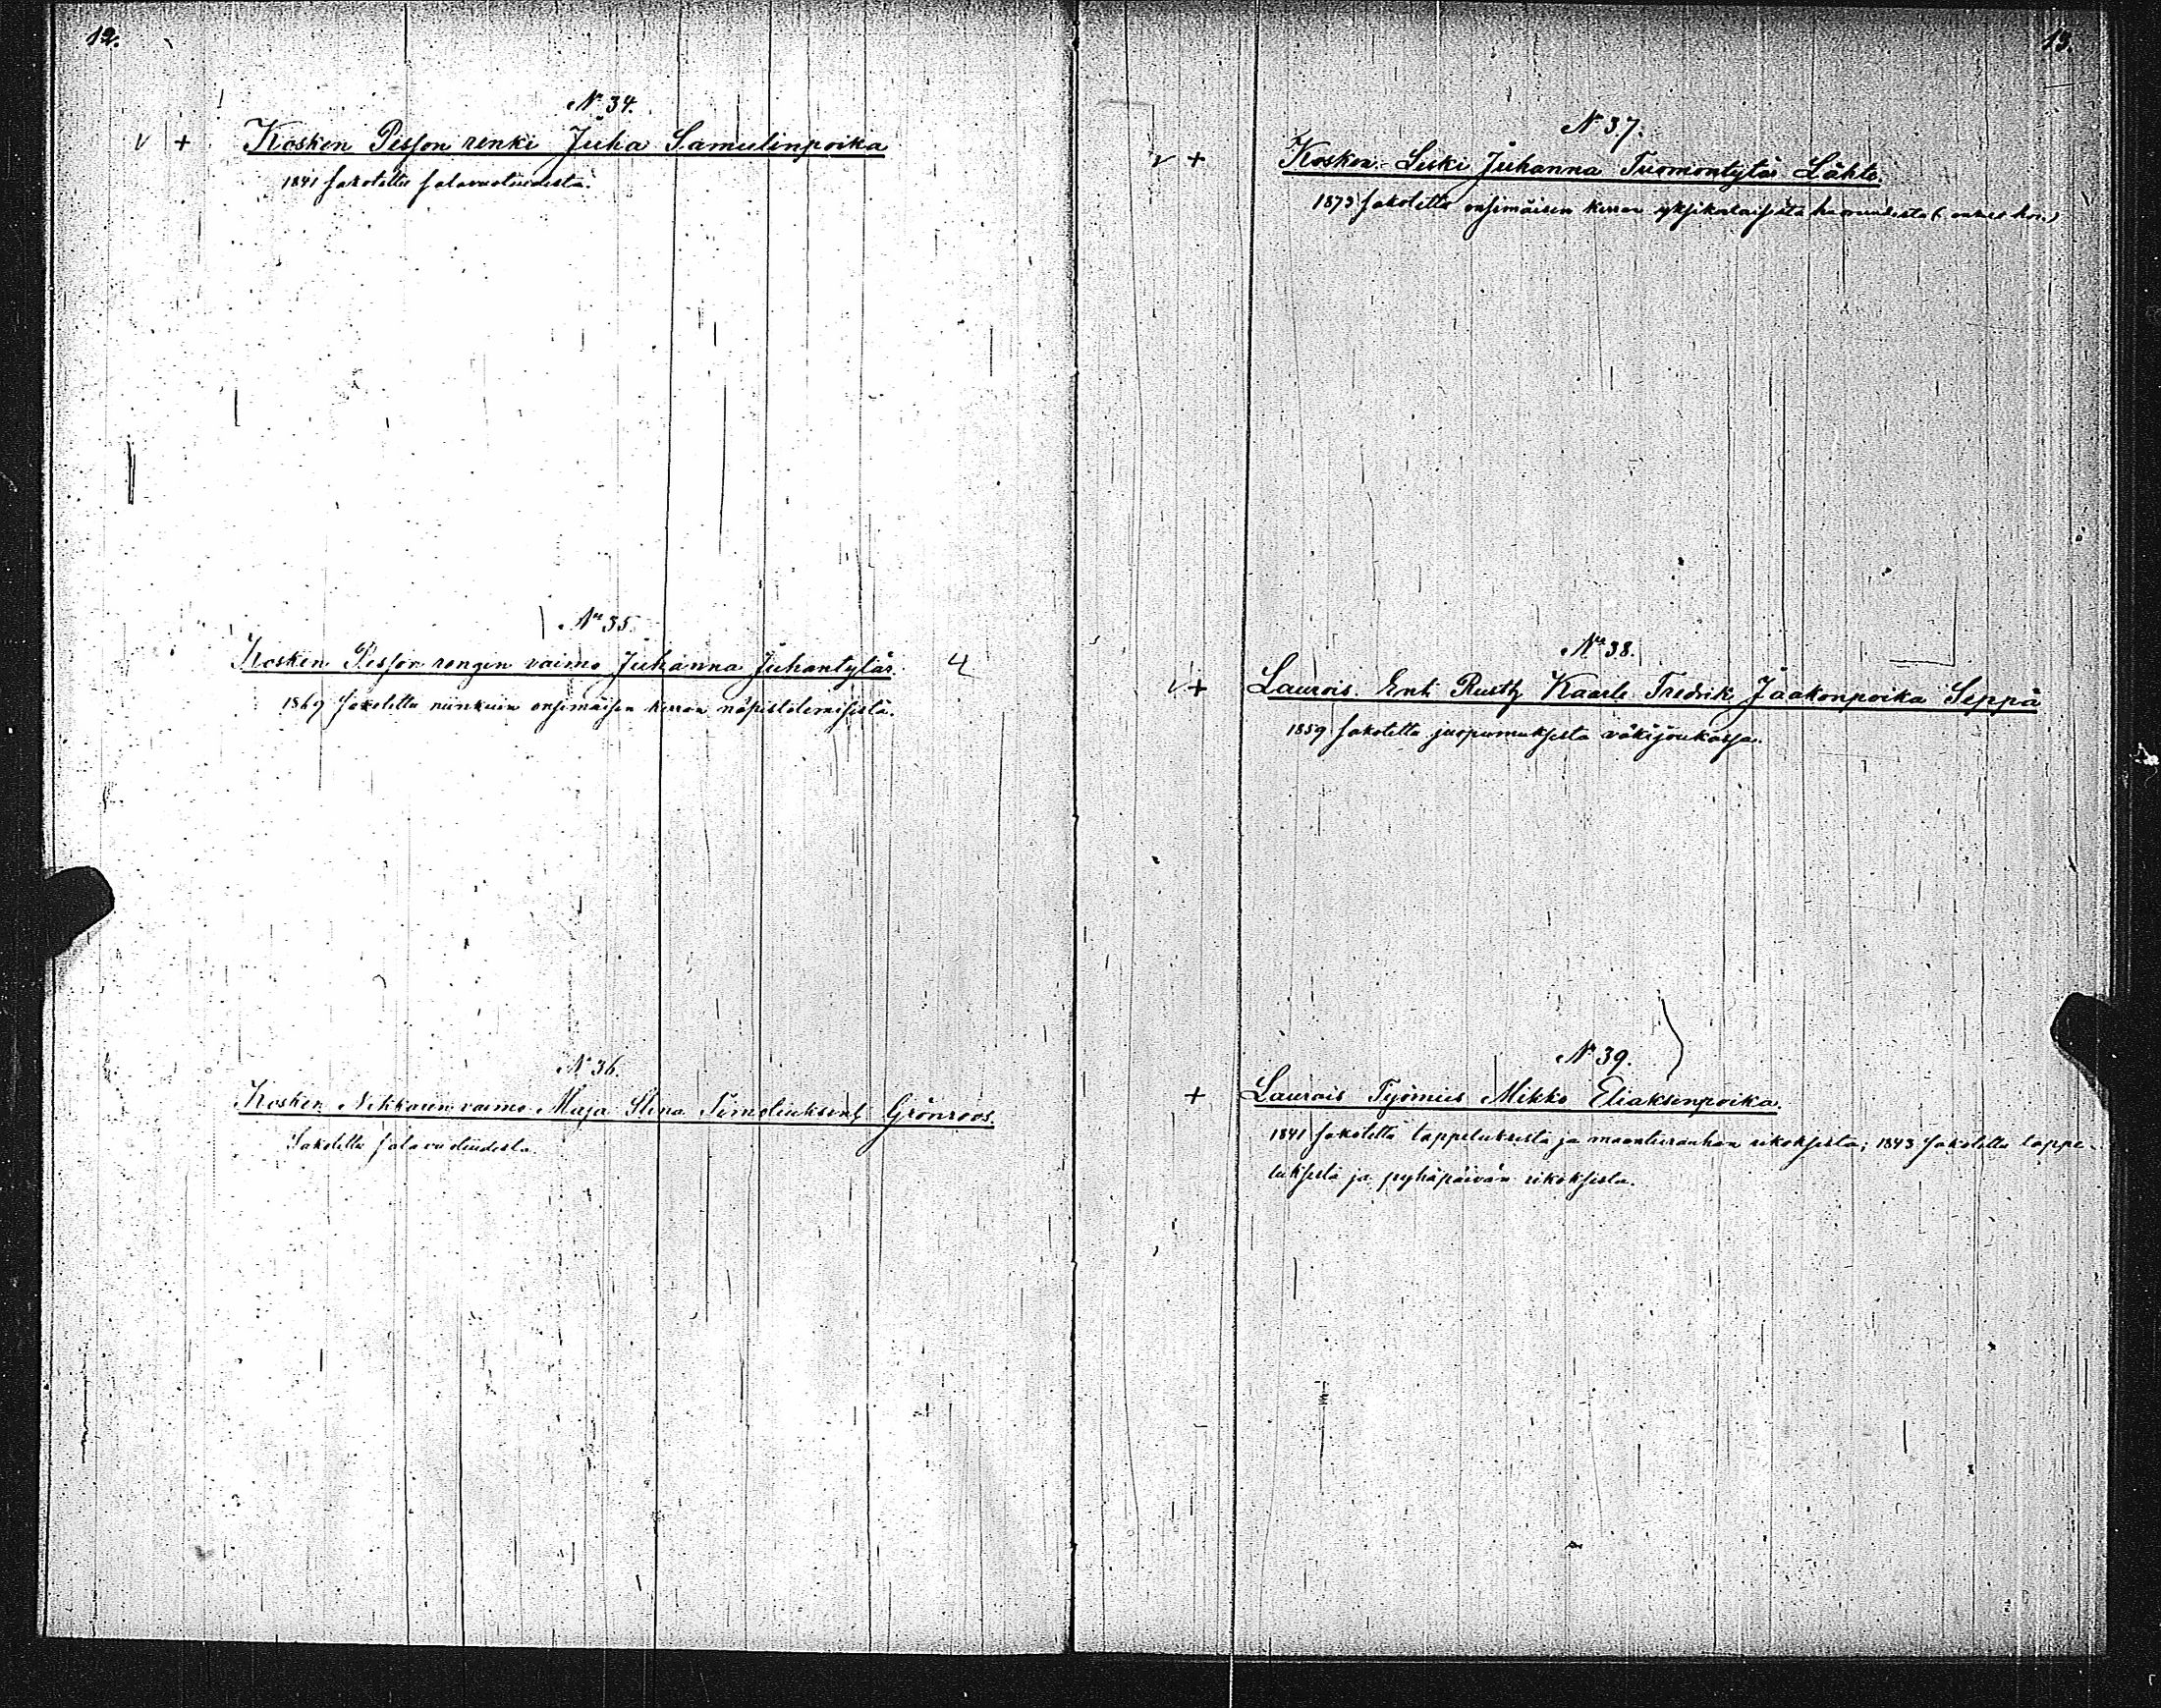 12.
N 34.
V + Kosken Pesson renki Juha Samulinpoika
1841 sakotettu salavuoteudesta.
N 35.
Kosken Pesson rengin vaimo Juhanna Juhantytär. 4
1869 sakotettu niinkuin ensimäisen kerran näpistelemisestä.
N 36.
Kosken Nikkarin vaimo Maja Stina Timoteuksent. Grönroos.
Sakotettu salavuoteudesta.
13.
N 37.
v + Kosken Leski Juhanna Tuomontytär Lähte.
1873 sakotettu ensimäisen kerran yksikertaisesta huoruudesta
N 38.
v + Laurois. Ent. Rusth. Kaarle Fredrik Jaakonpoika Seppä
1859 sakotettu juopumuksesta väkijoukossa.
N 39.
+ Laurois Työmies Mikko Eliaksenpoika.
1841 sakotettu tappeluksesta ja maantierauhan rikoksesta; 1843 sakotettu tappe-
luksesta ja pyhäpäivän rikoksesta.